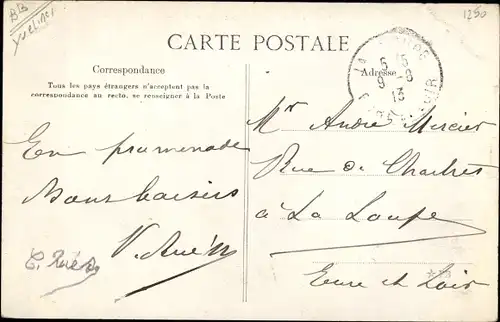 1250
CARTE POSTALE
Correspondance
Tous les pays étrangers n'acceptent pas la
correspondance au recto, se renseigner à la Poste
Adresse
LA LOUPE
5 15
9 - 8
13
EURE-ET-LOIR
En promenade
Bons baisers
Mr André Mercier
Rue de Chartres
à La Loupe
Eure et Loir